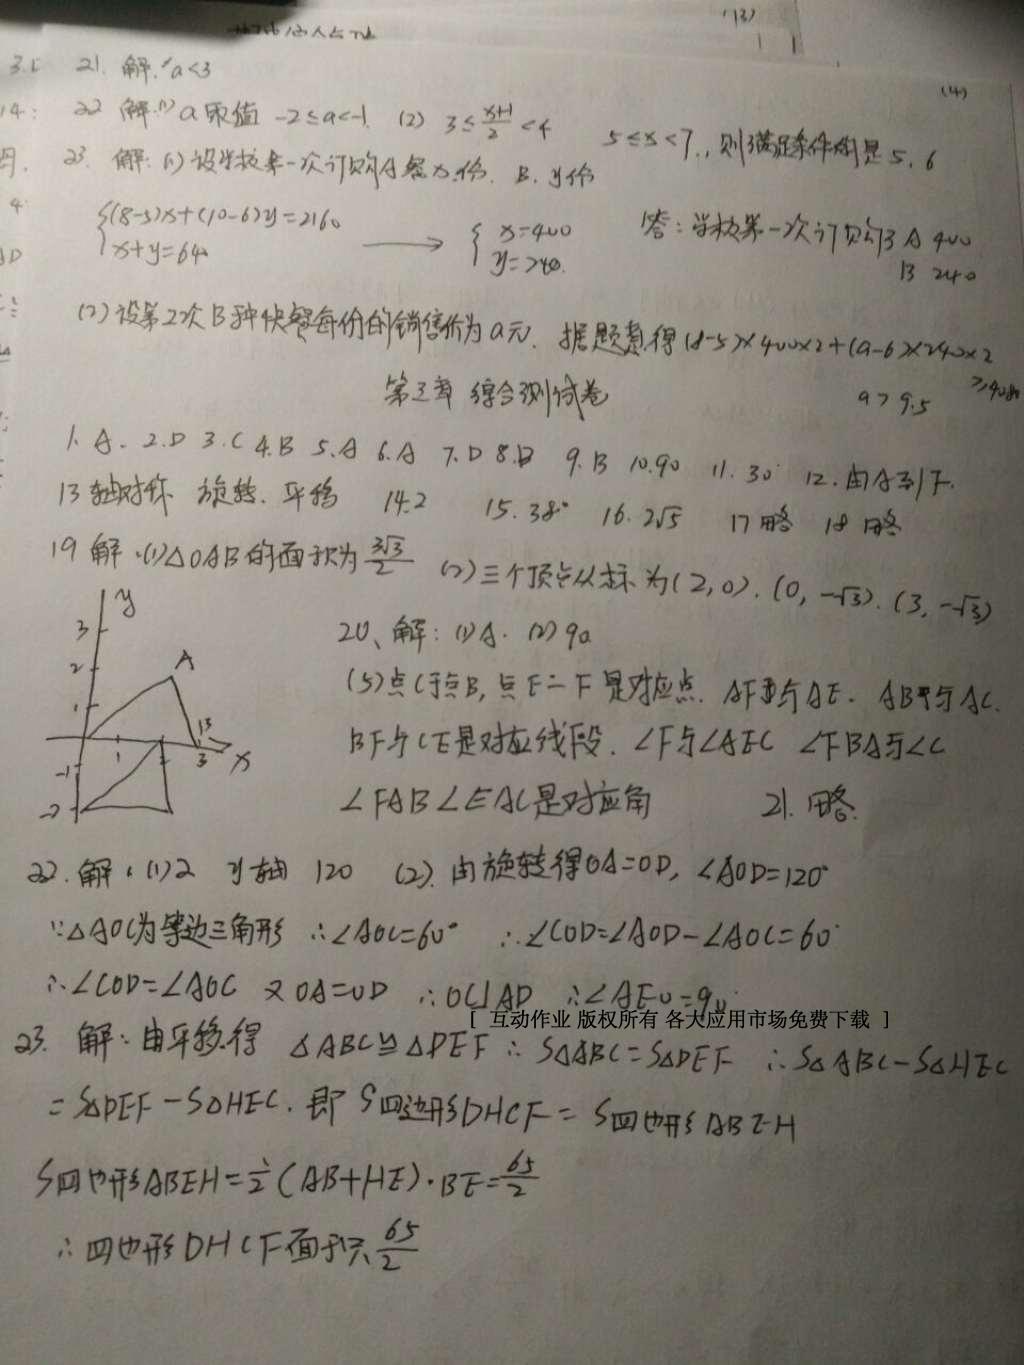 (13)
(4)
21. 解: a<3
22 解:(1) a 取值 -2≤a<-1. (2) 3≤(x+1)/2<4 5≤x<7., 则满足条件的是 5, 6
23. 解: (1) 设学校第一次订购A餐x份, B. y份
{(8-5)x+(10-6)y=2160
{x+y=640 → {x=400 y=240. 答: 学校第一次订购了A 400
B 240
(2) 设第2次B种快餐每份的销售价为a元. 据题意得 (8-5)×400×2+(a-6)×240×2
≥4080
a≥9.5
第三章 综合测试卷
1. A. 2.D 3.C 4.B 5.A 6.A 7.D 8.D 9.B 10.90 11.30° 12.由A到F.
13 轴对称 旋转. 平移 14.2 15.38° 16.2√5 17略 18略
19 解:(1)△OAB的面积为 3√3/2 (2)三个顶点坐标为(2,0).(0,-√3).(3,-√3)
y
3
2
A
1
1
3
x
-1
-2
20、解: (1)A. (2)90
(3)点C与点B, 点E与F是对应点. AF与AE. AB与AC.
BF与CE是对应线段. ∠F与∠AEC ∠FBA与∠C
∠FAB∠EAC是对应角 21. 略.
22. 解: (1)2 y轴 120 (2). 由旋转得OA=OD, ∠AOD=120°
∵△AOC为等边三角形 ∴∠AOC=60° ∴∠COD=∠AOD-∠AOC=60°
∴∠COD=∠AOC 又OA=OD ∴OC⊥AD ∴∠AEO=90°
[ 互动作业 版权所有 各大应用市场免费下载 ]
23. 解: 由平移得 △ABC≌△DEF ∴S△ABC=S△DEF ∴S△ABC-S△HEC
=S△DEF-S△HEC. 即 S四边形DHCF=S四边形ABEH
S四边形ABEH=1/2(AB+HE)·BE=65/2
∴四边形DHCF面积 65/2